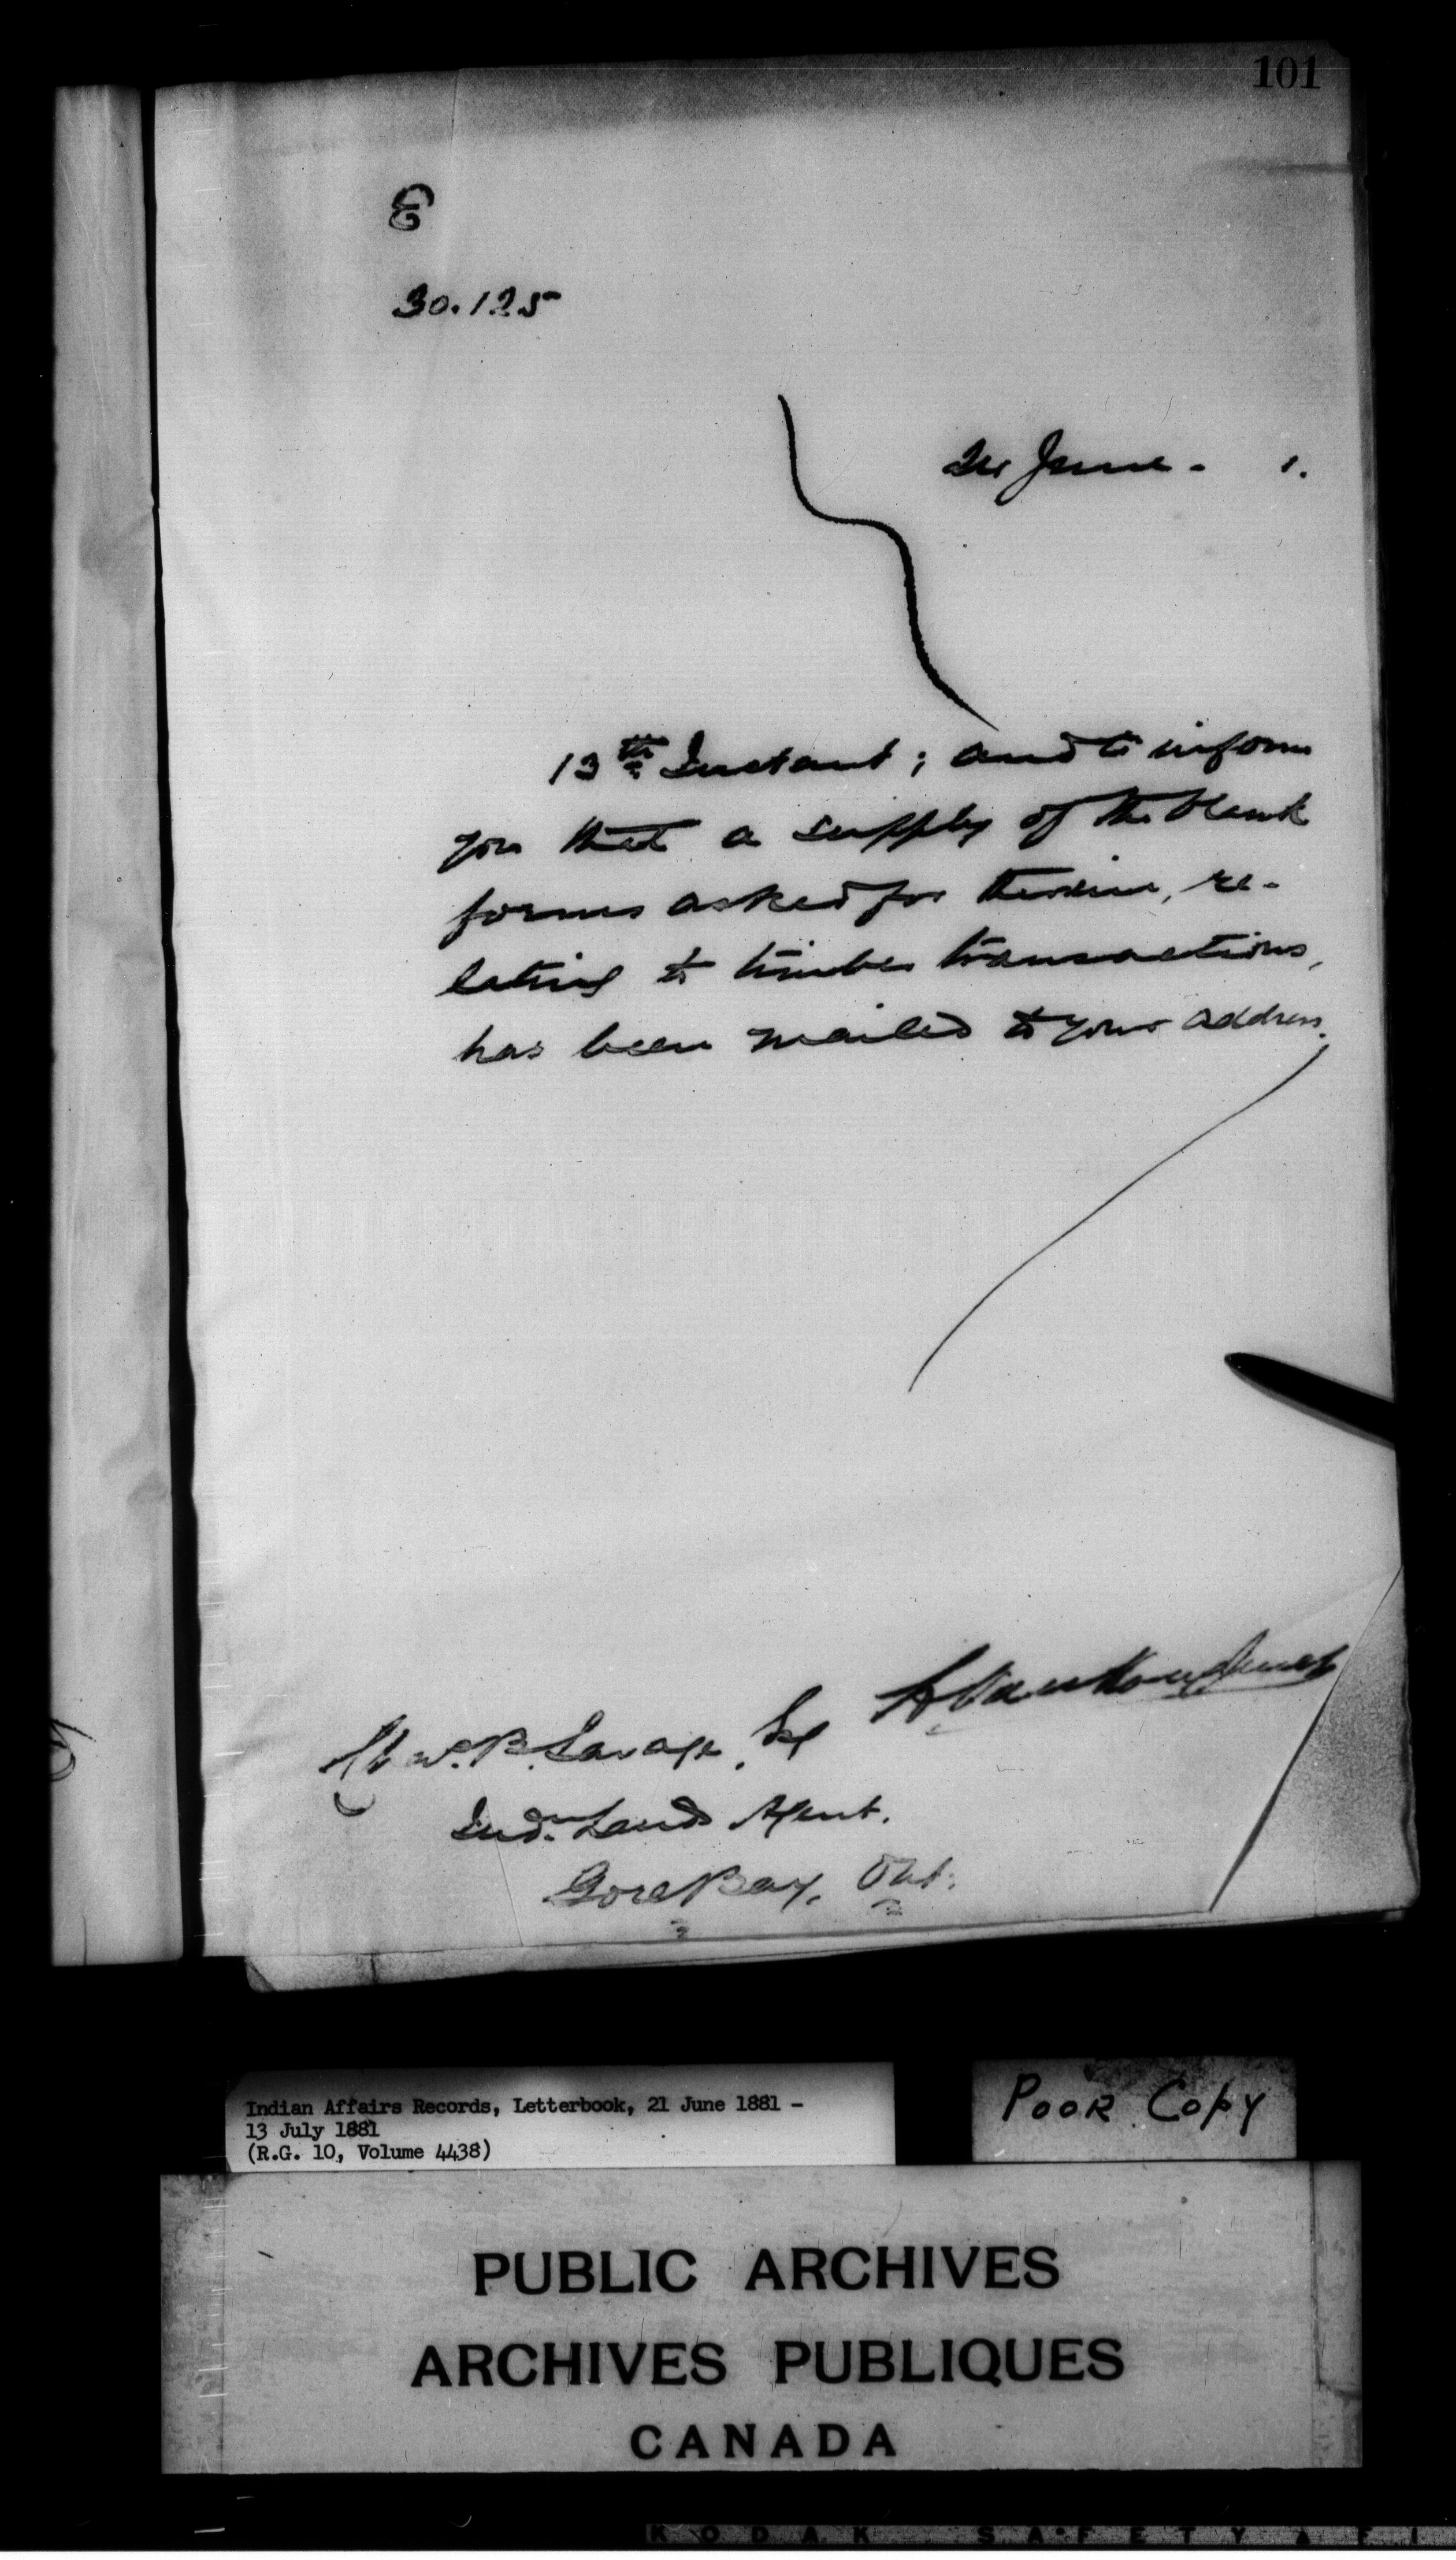 101
E
30.125
June - 1.
13th Instant; and to inform
you that a supply of the blank
forms asked for therein, re-
lating to timber transactions,
has been mailed to your address.
L. Vankoughnet
W. B. Savage, Esq
Indn. Lands Agent.
Gore Bay, Ont.
Indian Affairs Records, Letterbook, 21 June 1881 -
13 July 1881
(R.G. 10, Volume 4438)
POOR COPY
PUBLIC ARCHIVES
ARCHIVES PUBLIQUES
CANADA
KODAK SAFETY FI